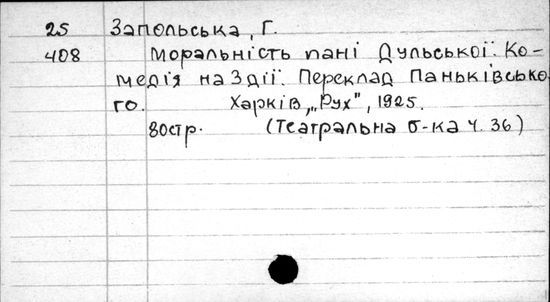 25 Запольська, Г.
408 Моральність пані Дульської. Ко-
медія на 3 дії. Переклад Паньківсько-
го. Харків, „Рух", 1925.
80стр. (Театральна б-ка ч. 36)